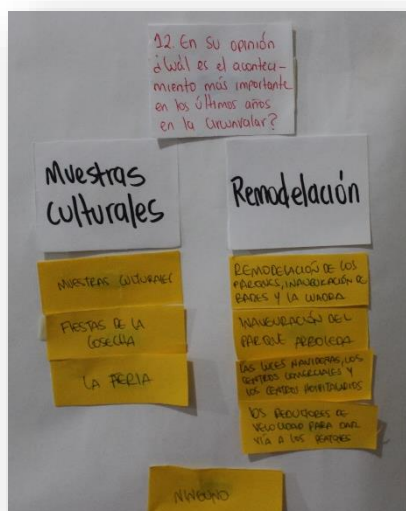 12. En su opinión
¿Cuál es el aconteci-
miento más importante
en los últimos años
en la circunvalar?
Muestras
culturales
MUESTRAS CULTURALES
FIESTAS DE LA
COSECHA
LA FERIA
Remodelación
REMODELACIÓN DE LOS
PARQUES, INAUGURACIÓN DE
BARES Y LA CUADRA
INAUGURACIÓN DEL
PARQUE ARBOLEDA
LAS LUCES NAVIDEÑAS, LOS
CENTROS COMERCIALES Y
LOS CENTROS HOSPITALARIOS
LOS REDUCTORES DE
VELOCIDAD PARA DAR
VÍA A LOS PEATONES
NINGUNO